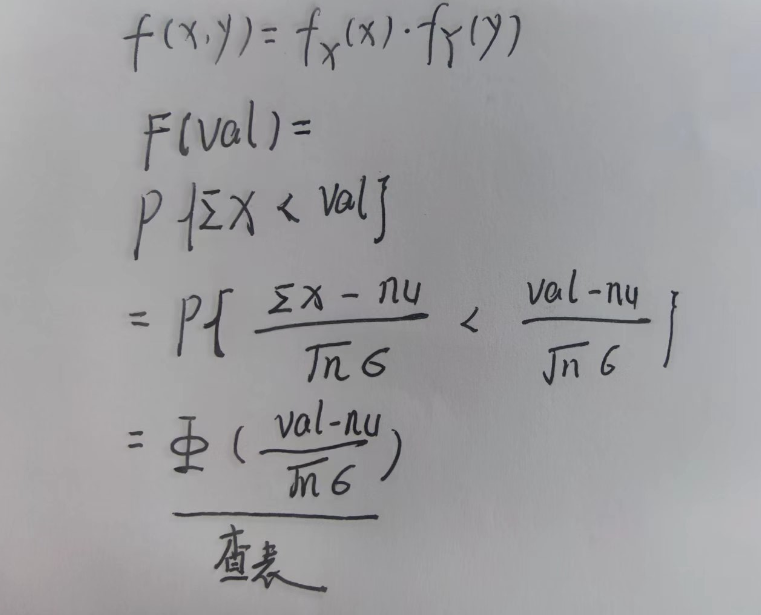 f(x,y) = f_X(x)·f_Y(y)
F(val) =
P{ΣX < val}
= P{ (ΣX - nu)/(√n 6) < (val-nu)/(√n 6) }
= Φ( (val-nu)/(√n 6) )
查表